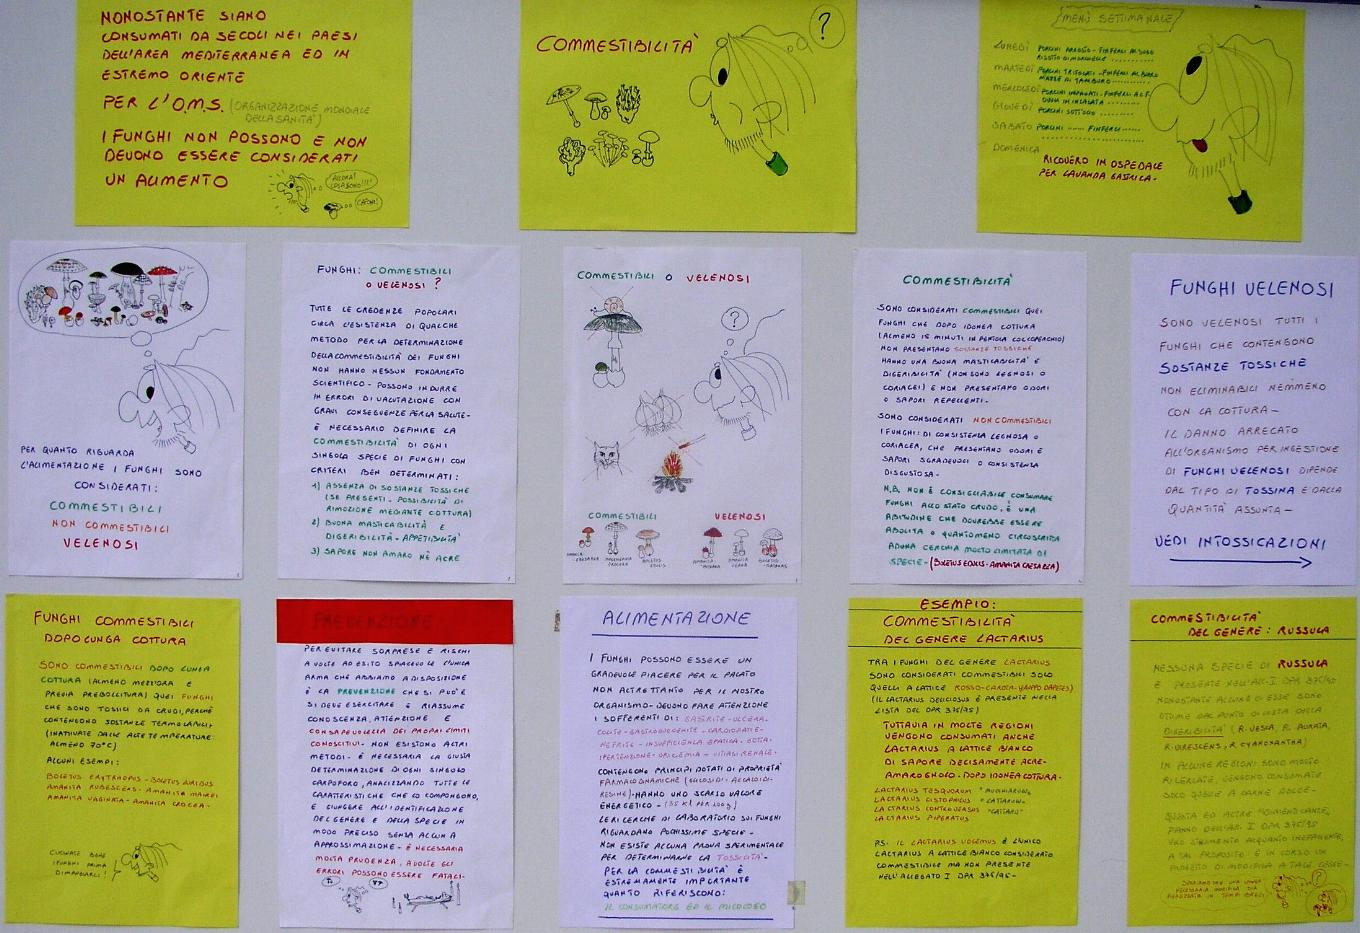 NONOSTANTE SIANO
CONSUMATI DA SECOLI NEI PAESI
DELL'AREA MEDITERRANEA ED IN
ESTREMO ORIENTE
PER L'O.M.S. (ORGANIZZAZIONE MONDIALE
DELLA SANITA')
I FUNGHI NON POSSONO E NON
DEVONO ESSERE CONSIDERATI
UN ALIMENTO
COMMESTIBILITA'
?
MENÙ SETTIMANALE
LUNEDÌ PORCINI ARROSTO - FINFERLI AL SUGO
RISOTTO DI MORCHELLE
MARTEDÌ PORCINI TRIFOLATI - FINFERLI AL BURRO
MAZZE DI TAMBURO
MERCOLEDÌ PORCINI IMPANATI - FINFERLI
OVOLI IN INSALATA
GIOVEDÌ PORCINI SOTTOLIO
SABATO PORCINI ---- FINFERLI
DOMENICA
RICOVERO IN OSPEDALE
PER LAVANDA GASTRICA -
PER QUANTO RIGUARDA
L'ALIMENTAZIONE I FUNGHI SONO
CONSIDERATI:
COMMESTIBILI
NON COMMESTIBILI
VELENOSI
FUNGHI: COMMESTIBILI
O VELENOSI ?
TUTTE LE CREDENZE POPOLARI
CIRCA L'ESISTENZA DI QUALCHE
METODO PER LA DETERMINAZIONE
DELLA COMMESTIBILITA' DEI FUNGHI
NON HANNO NESSUN FONDAMENTO
SCIENTIFICO - POSSONO INDURRE
IN ERRORI DI VALUTAZIONE CON
GRAVI CONSEGUENZE PER LA SALUTE -
È NECESSARIO DEFINIRE LA
COMMESTIBILITA' DI OGNI
SINGOLA SPECIE DI FUNGHI CON
CRITERI BEN DETERMINATI:
1) ASSENZA DI SOSTANZE TOSSICHE
(SE PRESENTI - POSSIBILITA' DI
RIMOZIONE MEDIANTE COTTURA)
2) BUONA MASTICABILITA' E
DIGERIBILITA' - APPETIBILITA'
3) SAPORE NON AMARO NÈ ACRE
COMMESTIBILI O VELENOSI
?
COMMESTIBILI VELENOSI
COMMESTIBILITA'
SONO CONSIDERATI COMMESTIBILI QUEI
FUNGHI CHE DOPO IDONEA COTTURA
(ALMENO 15 MINUTI IN PENTOLA COL COPERCHIO)
NON PRESENTANO SOSTANZE TOSSICHE
HANNO UNA BUONA MASTICABILITA' E
DIGERIBILITA' (NON SONO LEGNOSI O
CORIACEI) E NON PRESENTANO ODORI
O SAPORI REPELLENTI -
SONO CONSIDERATI NON COMMESTIBILI
I FUNGHI: DI CONSISTENZA LEGNOSA O
CORIACEA, CHE PRESENTANO ODORI E
SAPORI SGRADEVOLI O CONSISTENZA
DISGUSTOSA -
N.B. NON È CONSIGLIABILE CONSUMARE
FUNGHI ALLO STATO CRUDO, È UNA
ABITUDINE CHE DOVREBBE ESSERE
ABOLITA O QUANTOMENO CIRCOSCRITTA
AD UNA CERCHIA MOLTO LIMITATA DI
SPECIE - (BOLETUS EDULIS - AMANITA CAESAREA)
FUNGHI VELENOSI
SONO VELENOSI TUTTI I
FUNGHI CHE CONTENGONO
SOSTANZE TOSSICHE
NON ELIMINABILI NEMMENO
CON LA COTTURA -
IL DANNO ARRECATO
ALL'ORGANISMO PER INGESTIONE
DI FUNGHI VELENOSI DIPENDE
DAL TIPO DI TOSSINA E DALLA
QUANTITA' ASSUNTA -
VEDI INTOSSICAZIONI
FUNGHI COMMESTIBILI
DOPO LUNGA COTTURA
SONO COMMESTIBILI DOPO LUNGA
COTTURA (ALMENO MEZZ'ORA E
PREVIA PREBOLLITURA) QUEI FUNGHI
CHE SONO TOSSICI DA CRUDI, PERCHÈ
CONTENGONO SOSTANZE TERMOLABILI
(INATTIVATE DALLE ALTE TEMPERATURE:
ALMENO 70°C)
ALCUNI ESEMPI:
BOLETUS ERYTHROPUS - BOLETUS LURIDUS
AMANITA RUBESCENS - AMANITA MAIREI
AMANITA VAGINATA - AMANITA CROCEA -
CUCINATE BENE
I FUNGHI PRIMA
DI MANGIARLI !
PREVENZIONE
PER EVITARE SORPRESE E RISCHI
A VOLTE AD ESITO SPIACEVOLE L'UNICA
ARMA CHE ABBIAMO A DISPOSIZIONE
È LA PREVENZIONE CHE SI PUO' E
SI DEVE ESERCITARE E RIASSUME
CONOSCENZA, ATTENZIONE E
CONSAPEVOLEZZA DEI PROPRI LIMITI
CONOSCITIVI - NON ESISTONO ALTRI
METODI - È NECESSARIA LA GIUSTA
DETERMINAZIONE DI OGNI SINGOLO
CARPOFORO, ANALIZZANDO TUTTE LE
CARATTERISTICHE CHE LO COMPONGONO,
E GIUNGERE ALL'IDENTIFICAZIONE
DEL GENERE E DELLA SPECIE IN
MODO PRECISO SENZA ALCUNA
APPROSSIMAZIONE - È NECESSARIA
MOLTA PRUDENZA, A VOLTE GLI
ERRORI POSSONO ESSERE FATALI -
ALIMENTAZIONE
I FUNGHI POSSONO ESSERE UN
GRADEVOLE PIACERE PER IL PALATO
NON ALTRETTANTO PER IL NOSTRO
ORGANISMO - DEVONO FARE ATTENZIONE
I SOFFERENTI DI: GASTRITE - ULCERA -
COLITE - GASTRODUODENITE - CARDIOPATIE -
NEFRITE - INSUFFICIENZA EPATICA - GOTTA -
IPERTENZIONE - URICEMIA - LITIASI RENALE -
CONTENGONO PRINCIPI DOTATI DI PROPRIETA'
FARMACODINAMICHE (GLUCOSIDI - ALCALOIDI -
RESINE) - HANNO UNO SCARSO VALORE
ENERGETICO -
LE RICERCHE DI LABORATORIO SUI FUNGHI
RIGUARDANO POCHISSIME SPECIE -
NON ESISTE ALCUNA PROVA SPERIMENTALE
PER DETERMINARNE LA TOSSICITA' -
PER LA COMMESTIBILITA' È
ESTREMAMENTE IMPORTANTE
QUANTO RIFERISCONO:
IL CONSUMATORE ED IL MICOLOGO
ESEMPIO:
COMMESTIBILITA'
DEL GENERE LACTARIUS
TRA I FUNGHI DEL GENERE LACTARIUS
SONO CONSIDERATI COMMESTIBILI SOLO
QUELLI A LATTICE ROSSO-CAROTA
(IL LACTARIUS DELICIOSUS È PRESENTE NELLA
LISTA DEL DPR 376/95)
TUTTAVIA IN MOLTE REGIONI
VENGONO CONSUMATI ANCHE
LACTARIUS A LATTICE BIANCO
DI SAPORE DECISAMENTE ACRE -
AMAROGNOLO - DOPO IDONEA COTTURA -
LACTARIUS TESQUORUM
LACTARIUS CISTOPHILUS
LACTARIUS CONTROVERSUS
LACTARIUS PIPERATUS
P.S: IL LACTARIUS VOLEMUS È L'UNICO
LACTARIUS A LATTICE BIANCO CONSIDERATO
COMMESTIBILE MA NON PRESENTE
NELL'ALLEGATO I DPR 376/95 -
COMMESTIBILITA'
DEL GENERE: RUSSULA
NESSUNA SPECIE DI RUSSULA
È PRESENTE NELL'ALL. I DPR 376/95
NONOSTANTE ALCUNE DI ESSE SONO
OTTIME DAL PUNTO DI VISTA DELLA
DIGERIBILITÀ (R. VESCA, R. AURATA,
R. VIRESCENS, R. CYANOXANTHA)
IN ALCUNE REGIONI SONO MOLTO
RICERCATE, VENGONO CONSUMATE
SOLO QUELLE A CARNE DOLCE -
QUESTA ED ALTRE "DIMENTICANZE"
FANNO DELL'ALL. I DPR 376/95
UNO STRUMENTO ALQUANTO INEFFICIENTE,
A TAL PROPOSITO È IN CORSO UN
PROGETTO DI MODIFICA A TALE LEGGE -